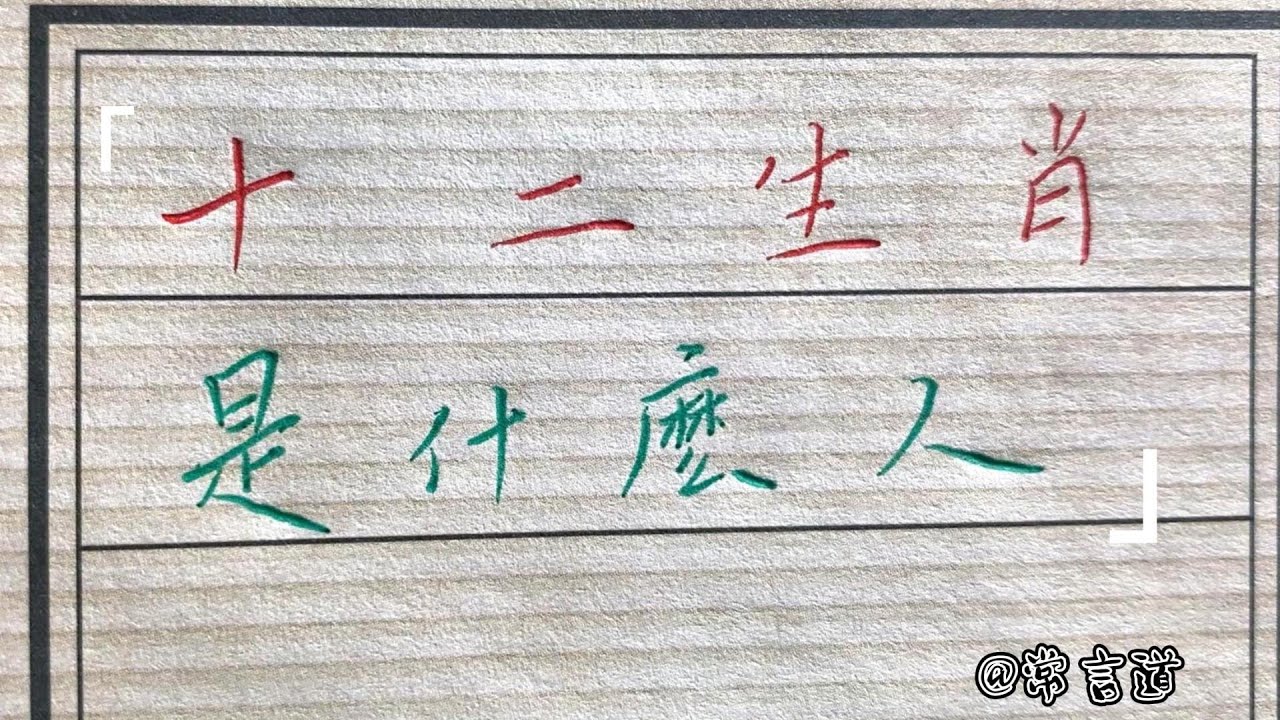 「十二生肖
是什麼人」
@常言道